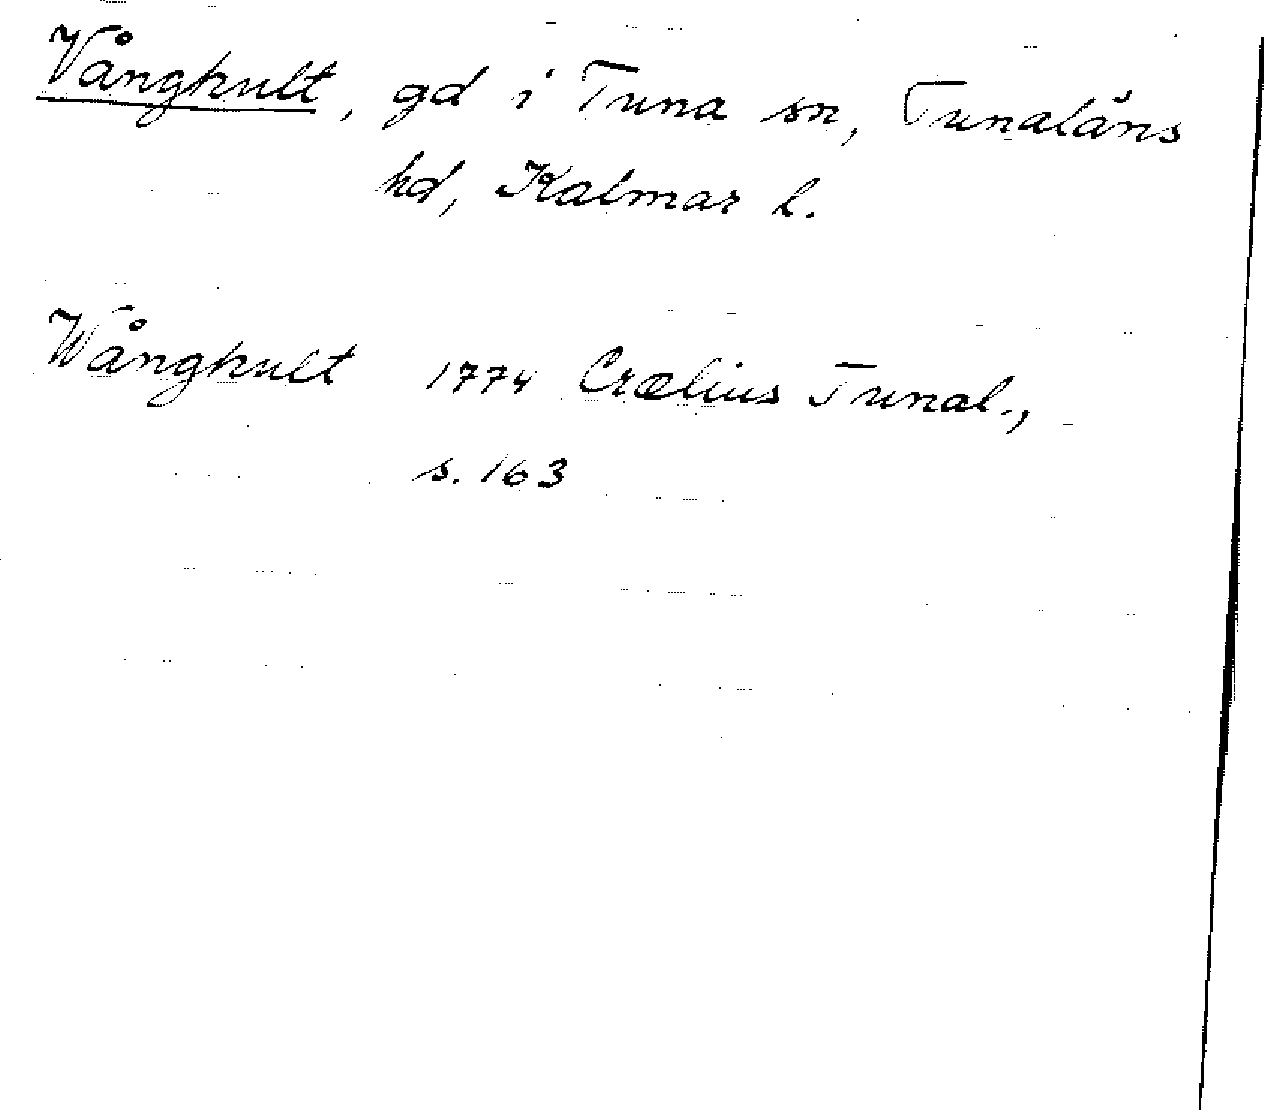 Vånghult, gd i Tuna sn, Tunaläns
hd, Kalmar l.
Wånghult 1774 Crælius Tunal.,
s. 163